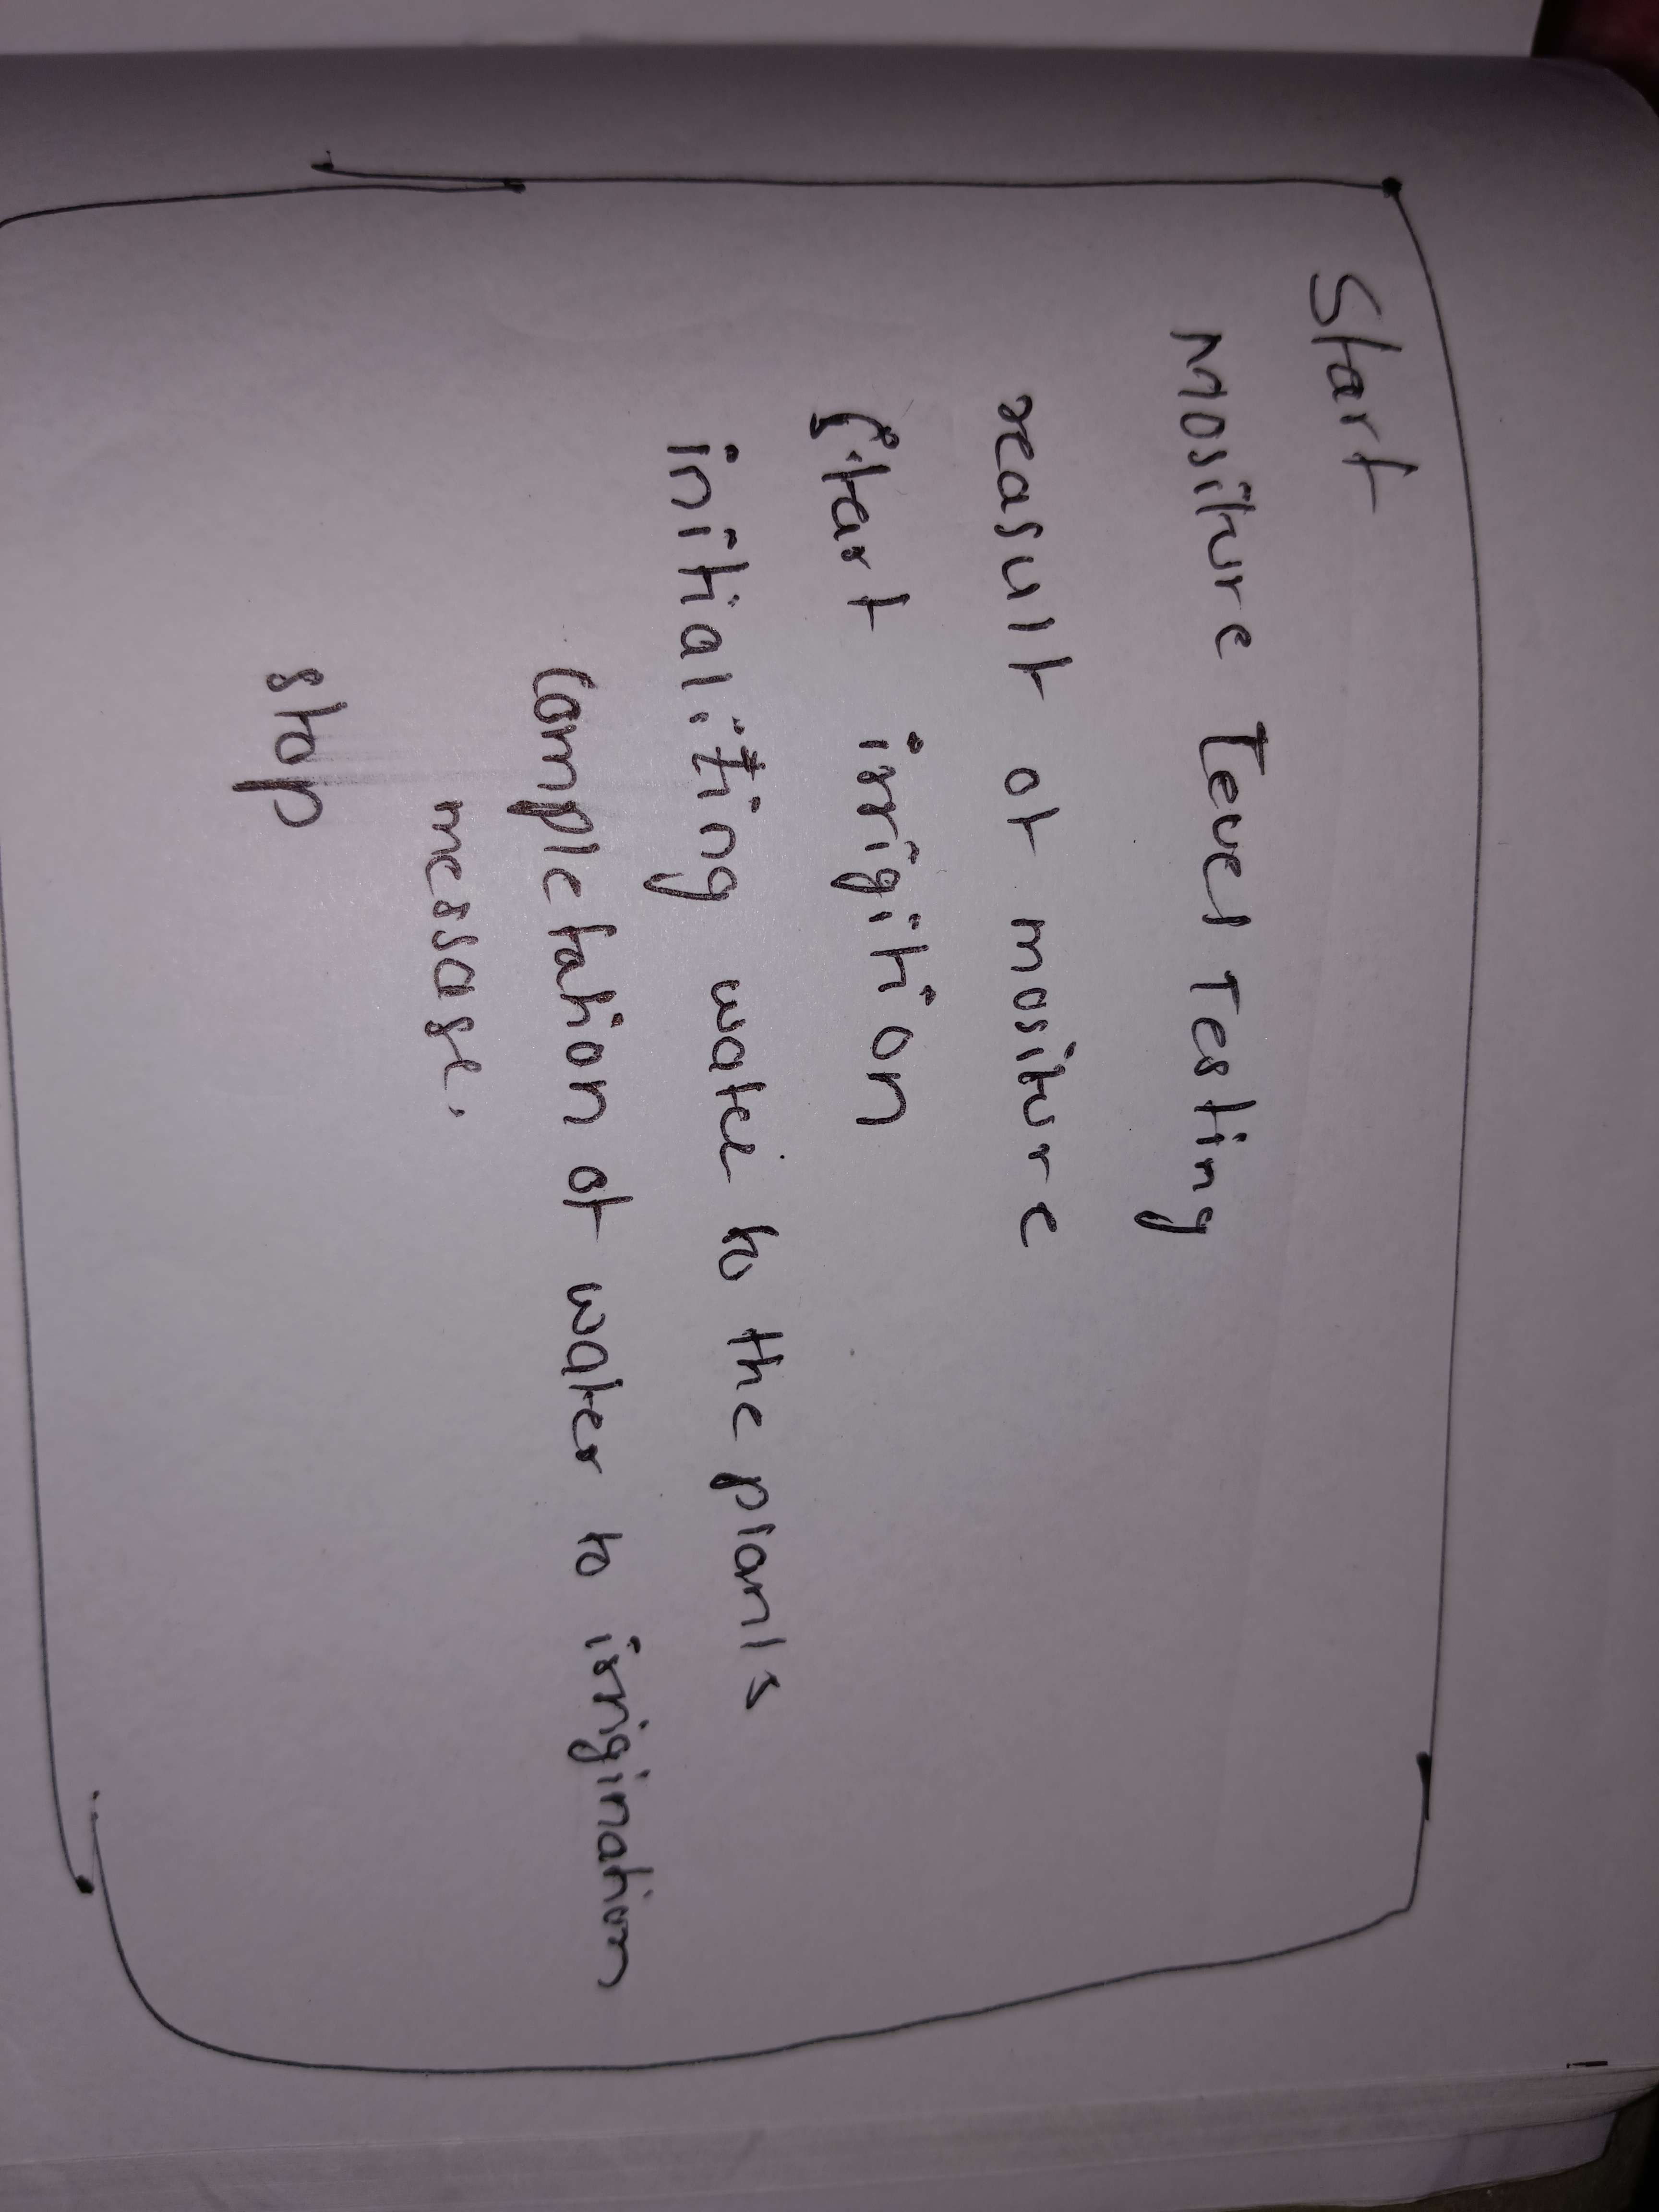 Start
Mositure Level Testing
reasult of mositure
Start irrigition
initializing water to the plants
Completation of water to irrigination
message.
stop